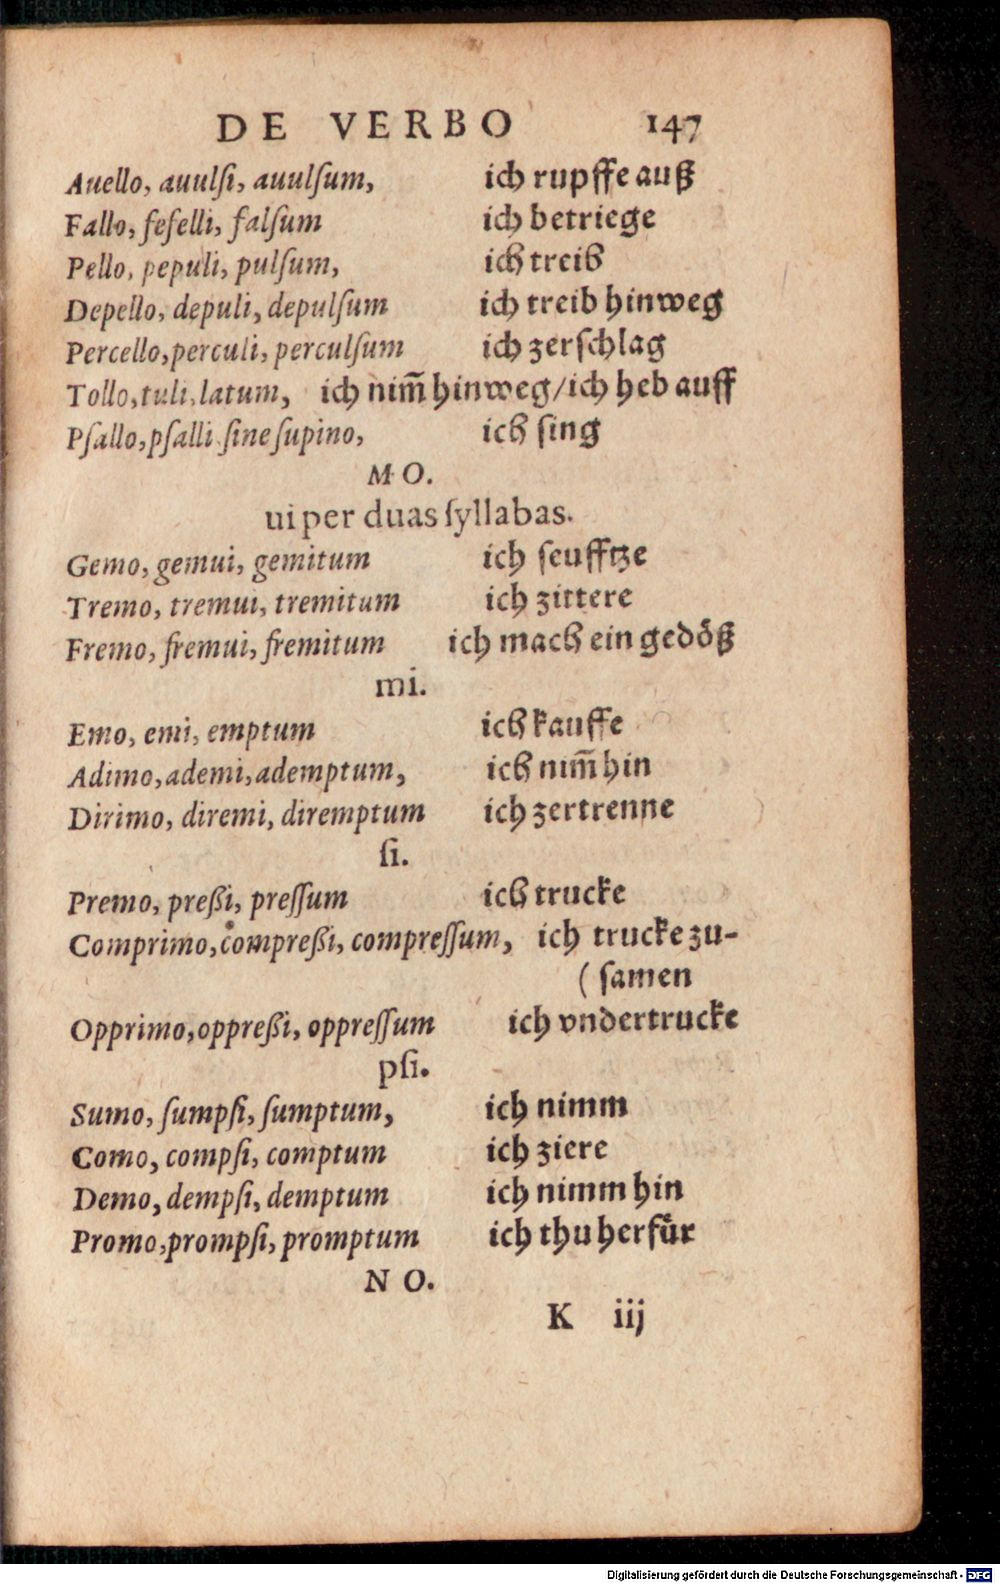 DE VERBO 147
Auello, auulſi, auulſum, ich rupffe auß
Fallo, fefelli, falſum ich betriege
Pello, pepuli, pulſum, ich treib
Depello, depuli, depulſum ich treib hinweg
Percello, perculi, perculſum ich zerſchlag
Tollo, tuli, latum, ich nim̄ hinweg/ich heb auff
Pſallo, pſalli ſine ſupino, ich ſing
MO.
ui per duas ſyllabas.
Gemo, gemui, gemitum ich ſeufftze
Tremo, tremui, tremitum ich zittere
Fremo, fremui, fremitum ich mach ein gedoͤß
mi.
Emo, emi, emptum ich kauffe
Adimo, ademi, ademptum, ich nim̄ hin
Dirimo, diremi, diremptum ich zertrenne
ſi.
Premo, preßi, preſſum ich trucke
Comprimo, compreßi, compreſſum, ich trucke zu-
(ſamen
Opprimo, oppreßi, oppreſſum ich vndertrucke
pſi.
Sumo, ſumpſi, ſumptum, ich nimm
Como, compſi, comptum ich ziere
Demo, dempſi, demptum ich nimm hin
Promo, prompſi, promptum ich thu herfuͤr
NO.
K iij
Digitalisierung gefördert durch die Deutsche Forschungsgemeinschaft - DFG